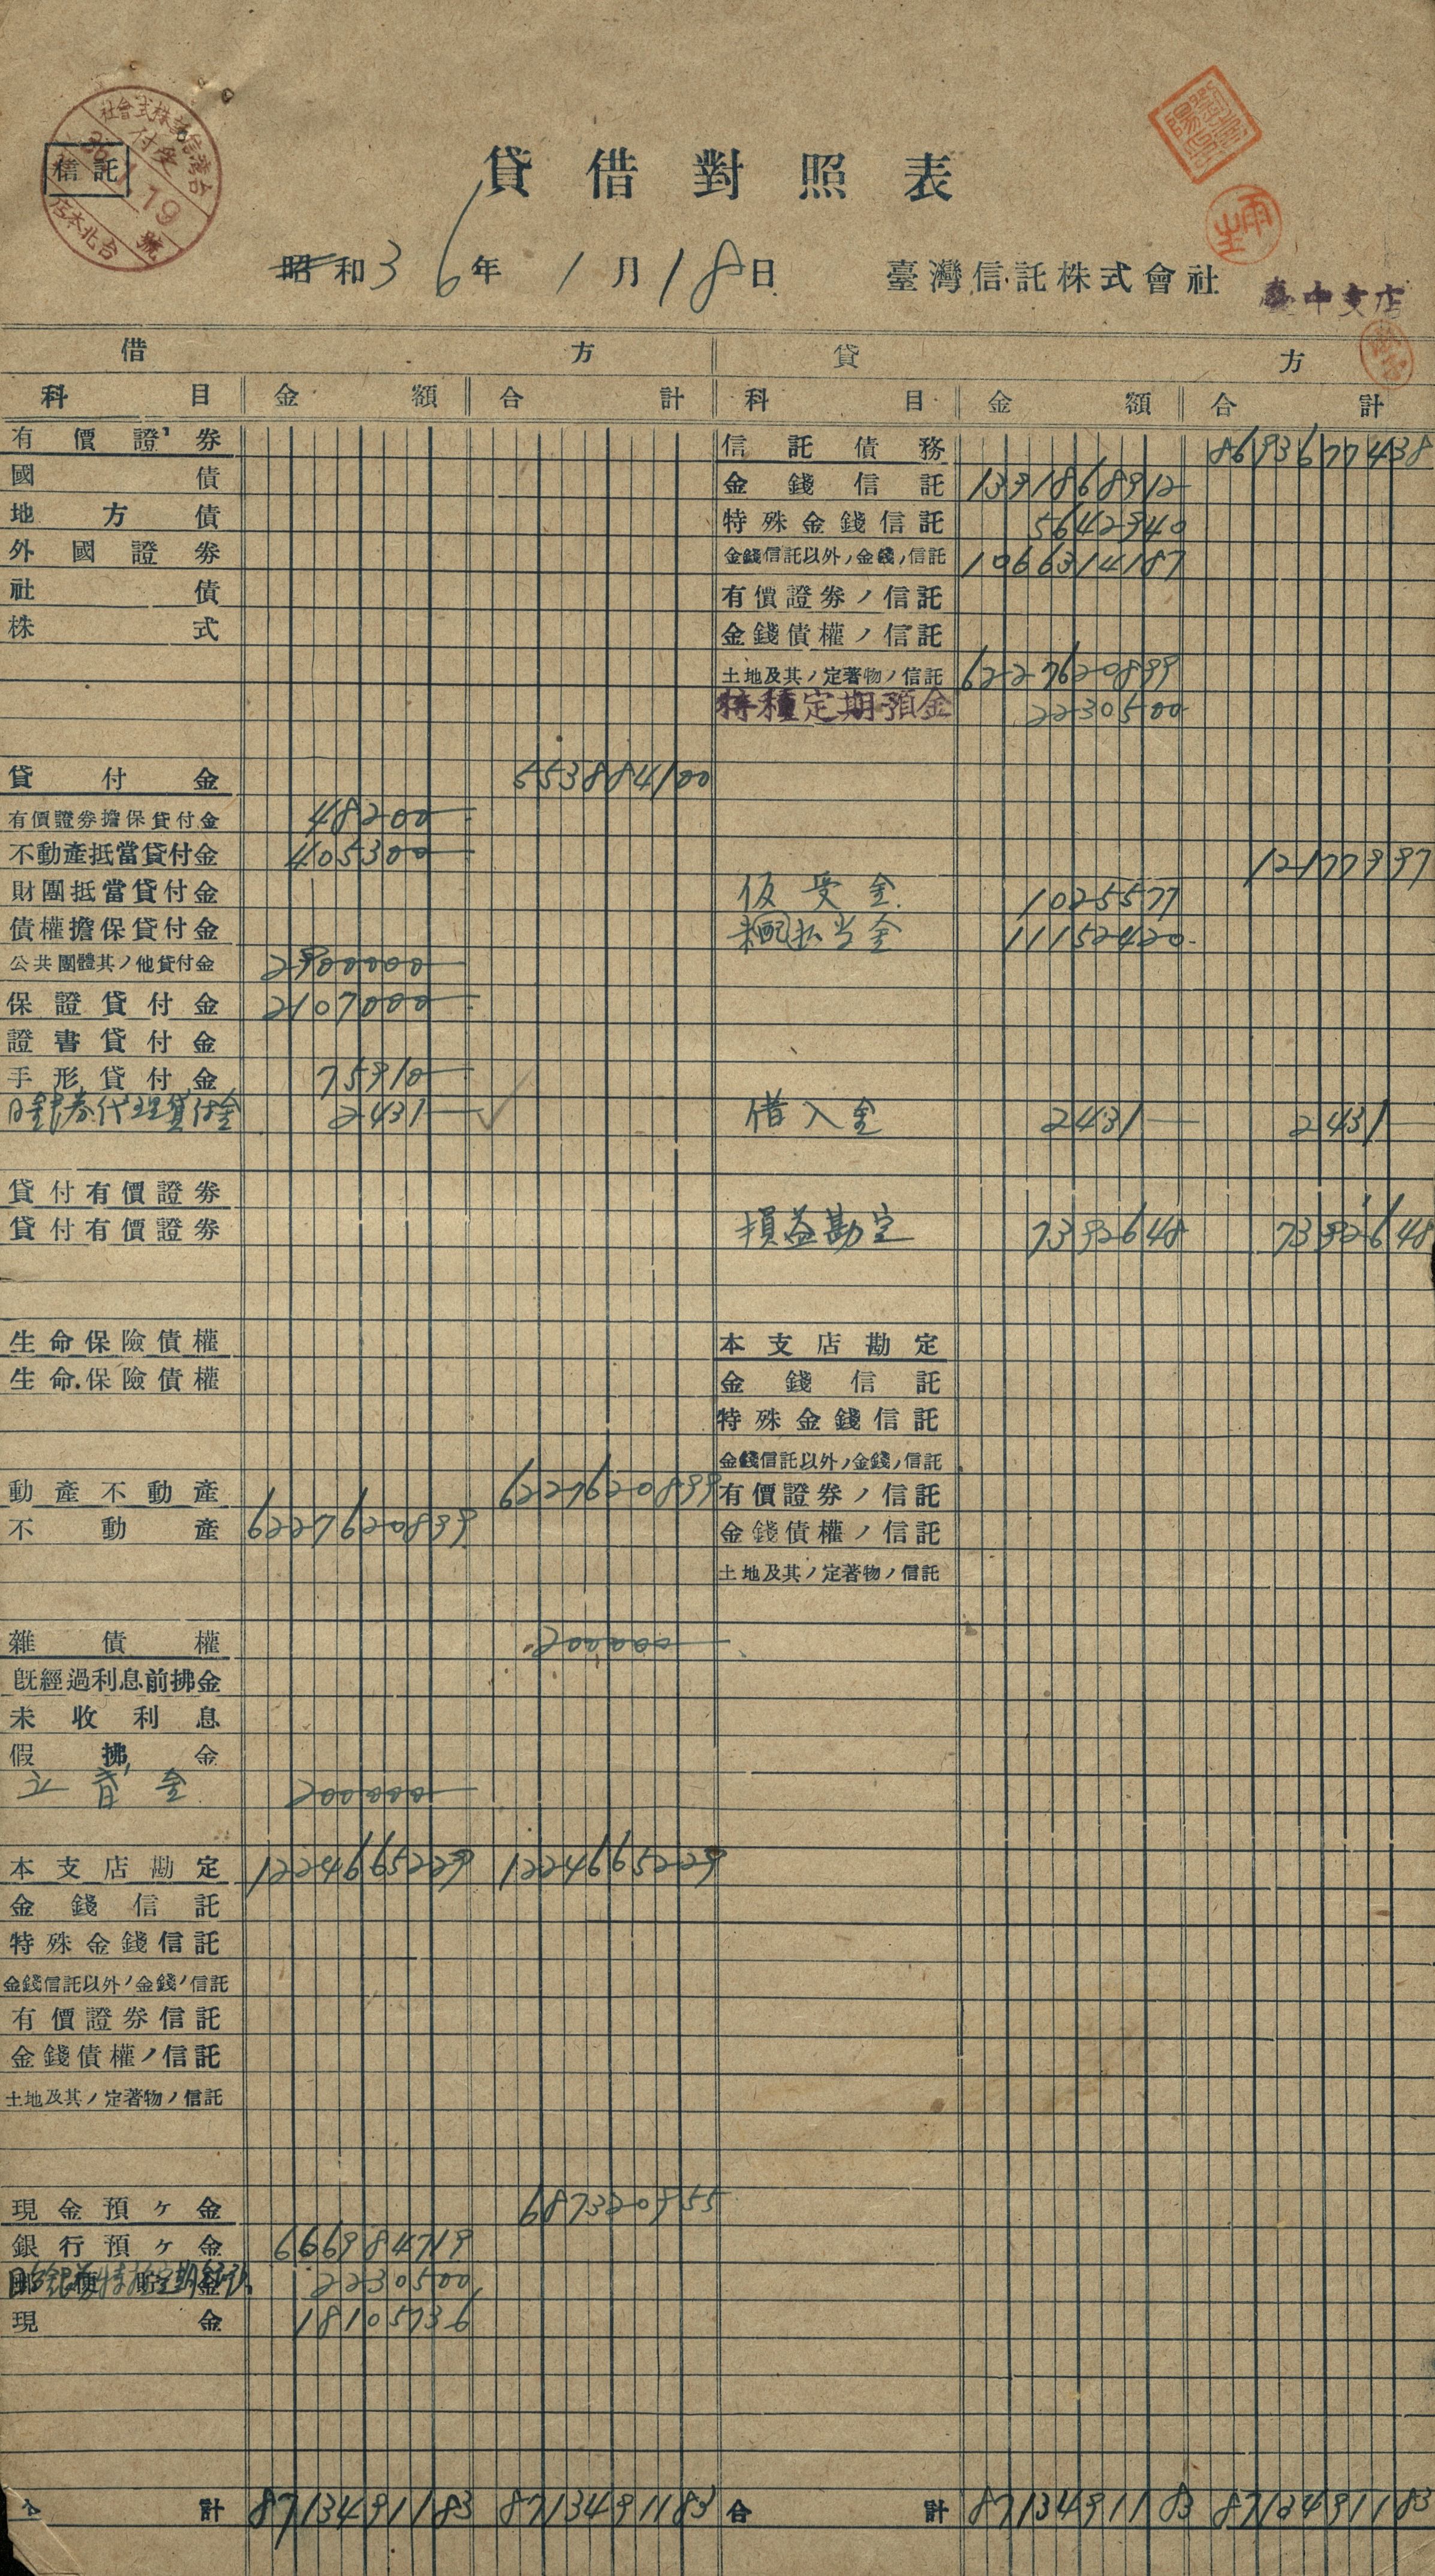 台灣信託株式會社
受付
36.1.19
號
台北本店
信託
貸借對照表
昭和36年1月18日
臺灣信託株式會社
臺中支店
借方 貸方
科目 金額 合計 科目 金額 合計
有價證券 信託債務 8693677438
國債 金錢信託 1391868912
地方債 特殊金錢信託 5642940
外國證券 金錢信託以外ノ金錢ノ信託 1066314187
社債 有價證券ノ信託
株式 金錢債權ノ信託
土地及其ノ定著物ノ信託 6227620899
特種定期預金 2230500
貸付金 553884100
有價證券擔保貸付金 48200—
不動產抵當貸付金 405300— 12177997
財團抵當貸付金 仮受金 1025577
債權擔保貸付金 未払配当金 11152420
公共團體其ノ他貸付金 2900000—
保證貸付金 2107000—
證書貸付金
手形貸付金 75910—
代理貸付金 2431— 借入金 2431— 2431—
貸付有價證券
貸付有價證券 損益勘定 7392648 7392648
生命保險債權 本支店勘定
生命保險債權 金錢信託
特殊金錢信託
金錢信託以外ノ金錢ノ信託
動產不動產 6227620899 有價證券ノ信託
不動產 6227620899 金錢債權ノ信託
土地及其ノ定著物ノ信託
雜債權 200000—
旣經過利息前拂金
未收利息
假拂金
立替金 200000—
本支店勘定 1224665229 1224665229
金錢信託
特殊金錢信託
金錢信託以外ノ金錢ノ信託
有價證券信託
金錢債權ノ信託
土地及其ノ定著物ノ信託
現金預ヶ金 687320955
銀行預ヶ金 666984719
郵便貯金 2230500
現金 18105736
合計 8713491183 8713491183 合計 8713491183 8713491183